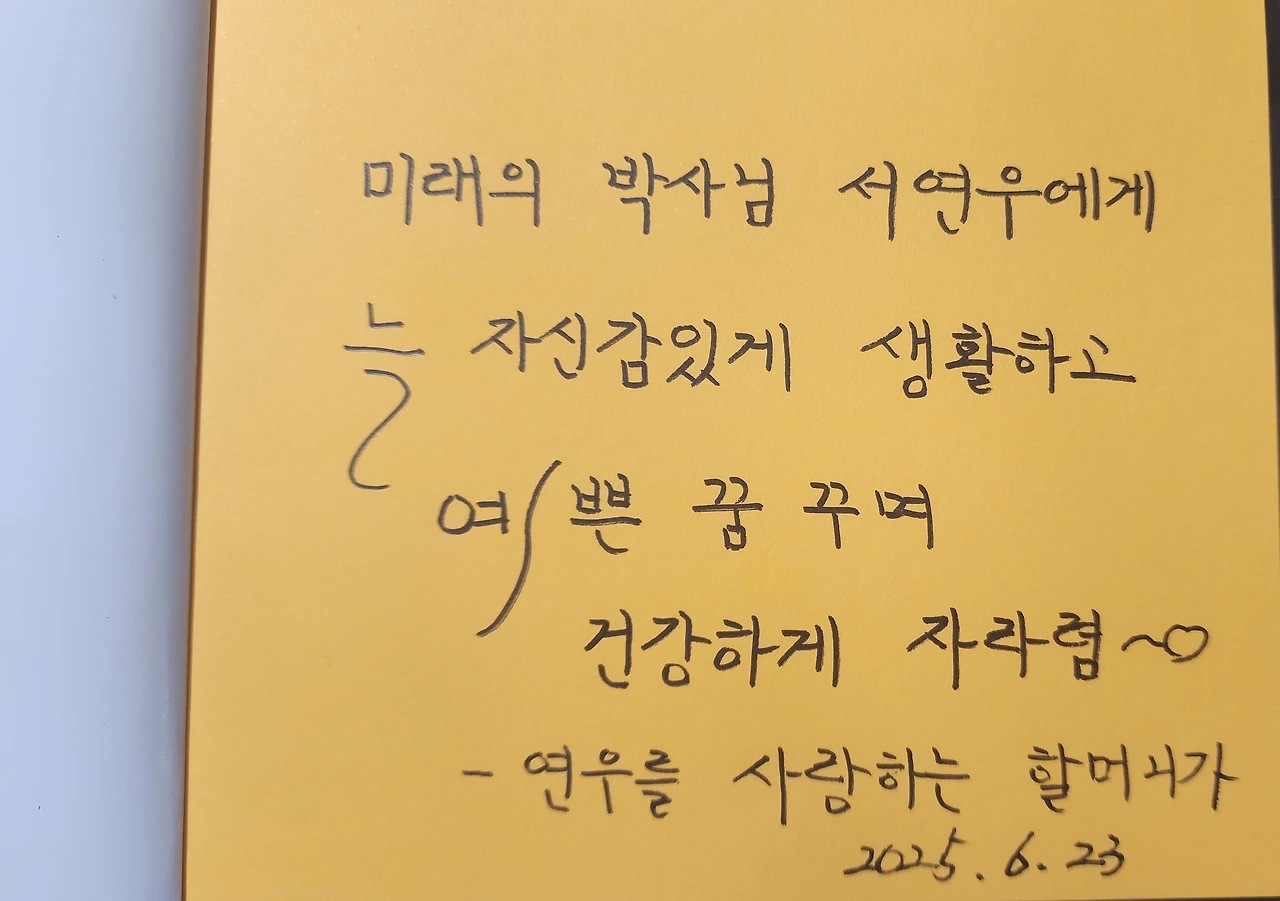 미래의 박사님 서연우에게
늘 자신감있게 생활하고
예쁜 꿈 꾸며
건강하게 자라렴~♡
- 연우를 사랑하는 할머니가
2025. 6. 23